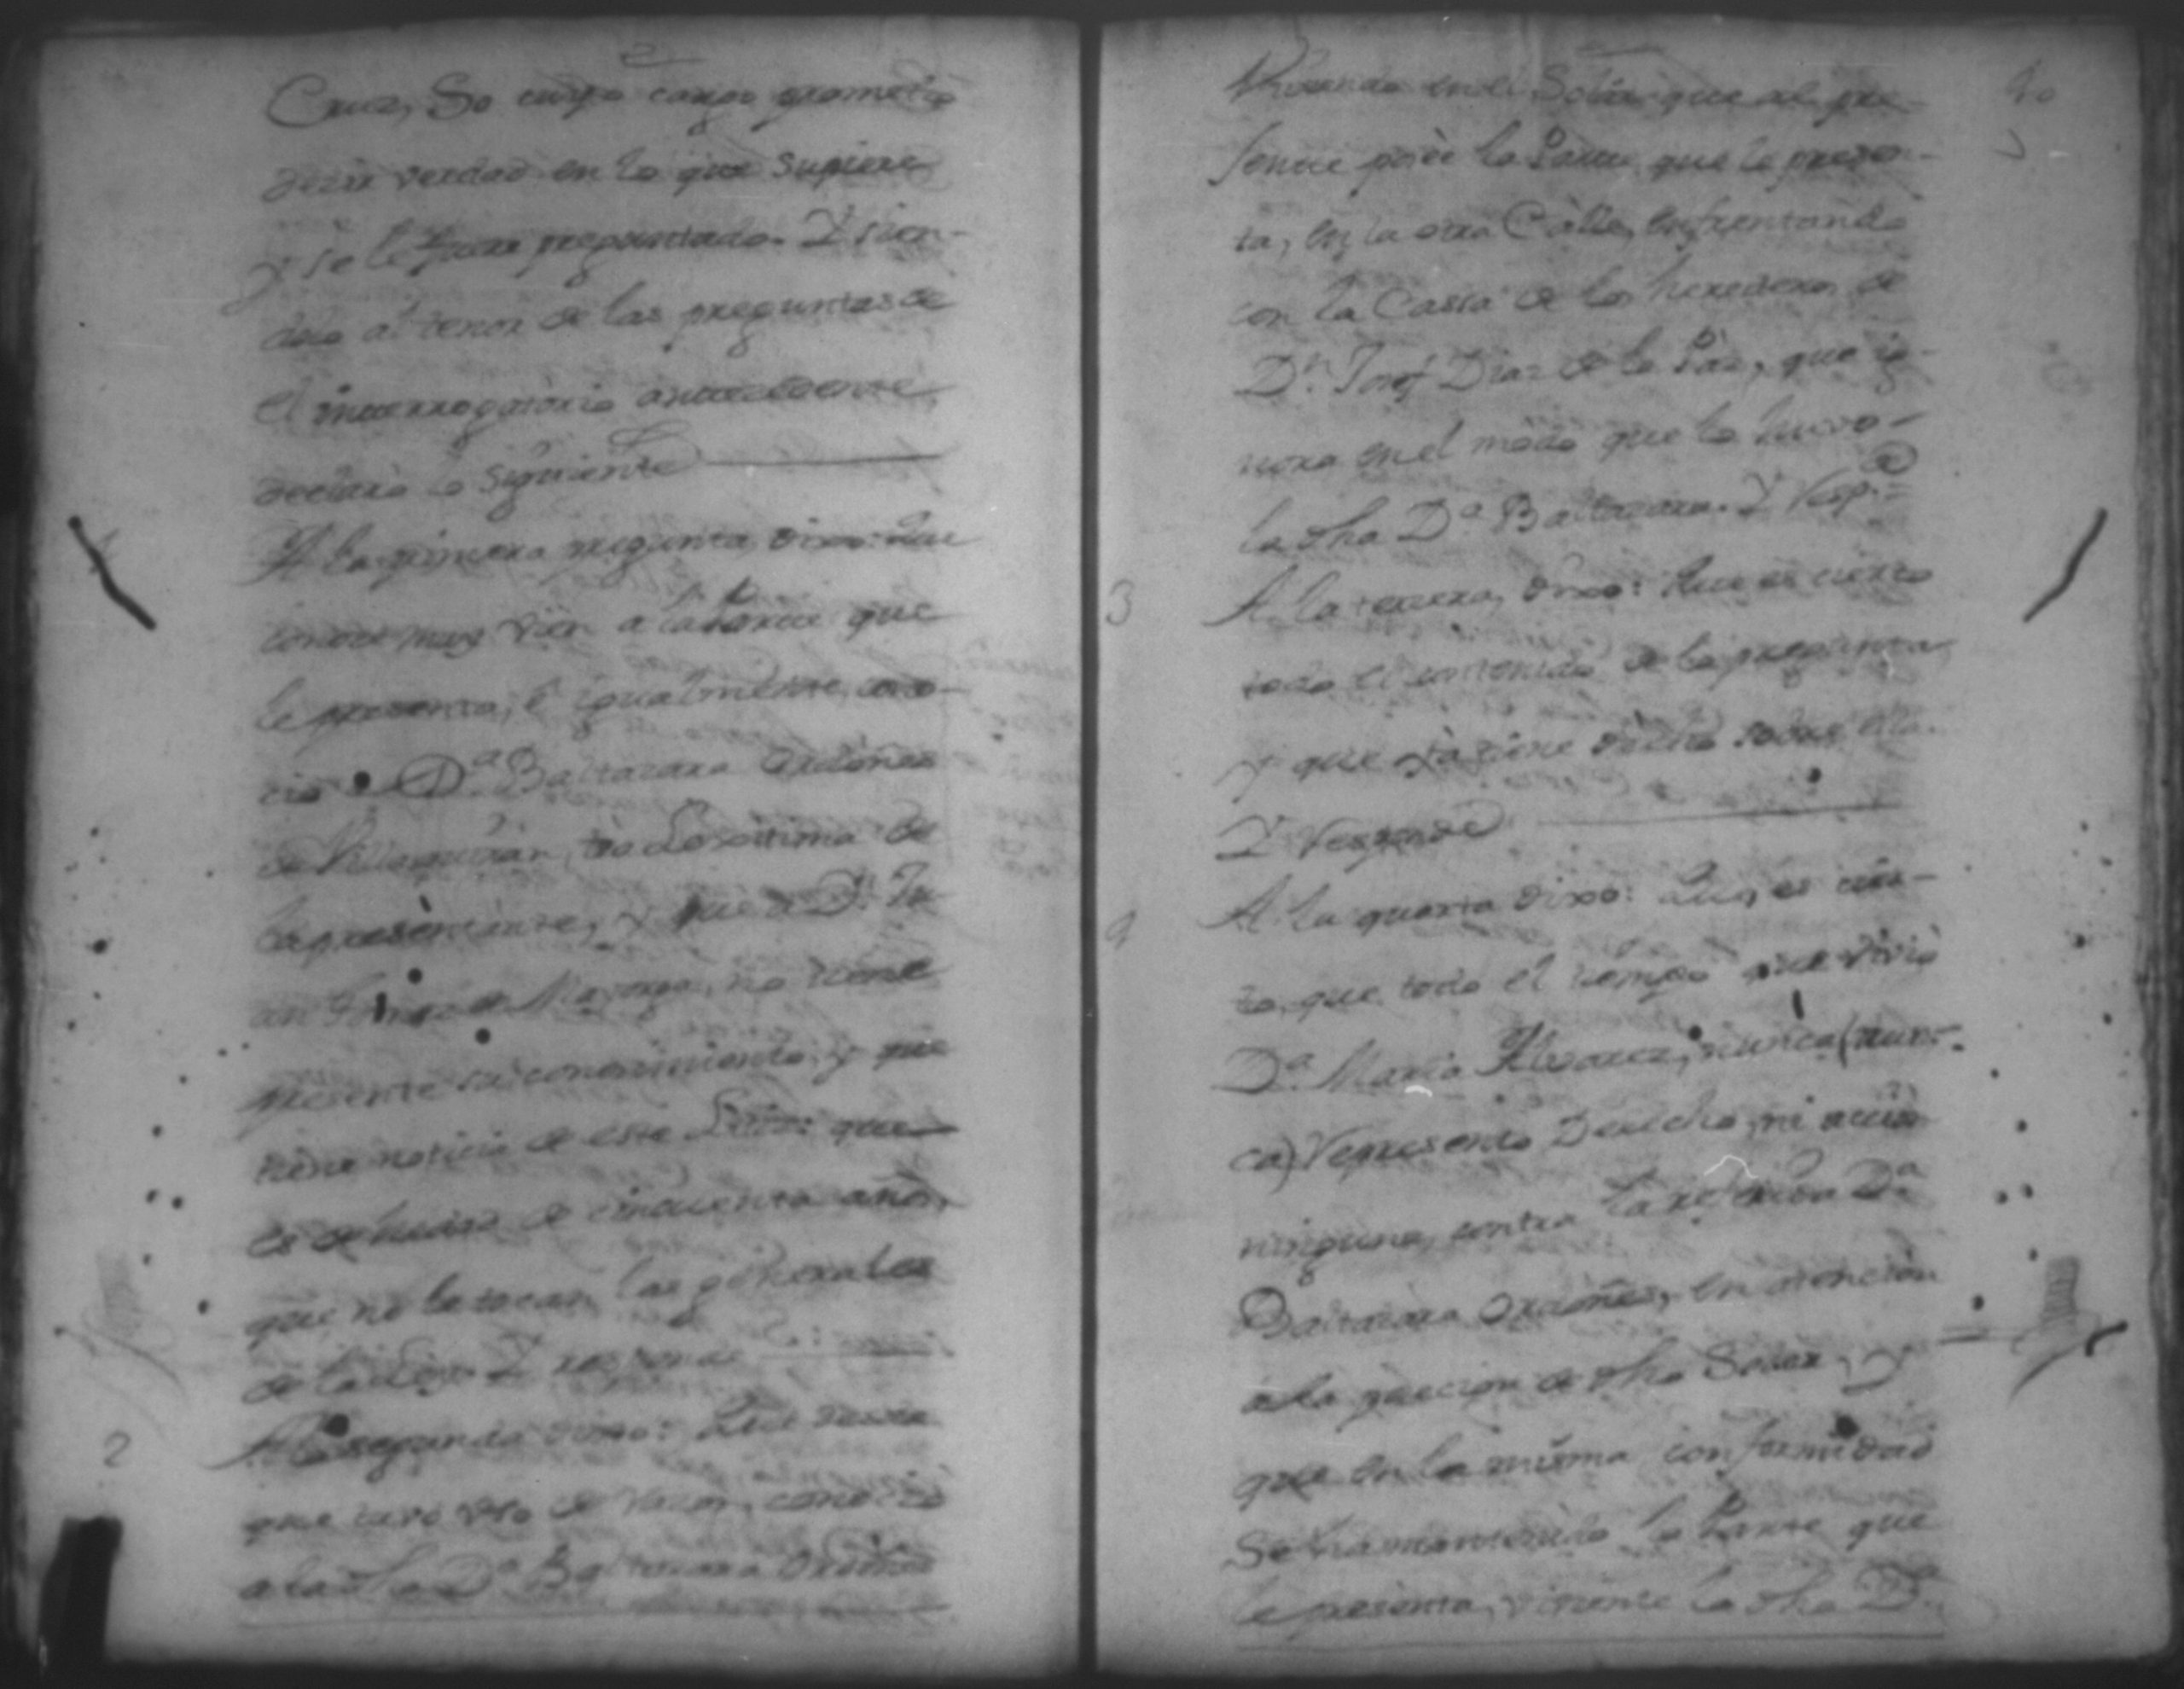 Cruz, So cuyo cargo prometio
dezir verdad en lo que supiere
y se le fuere preguntado. Y sien-
dolo al tenor de las preguntas de
el interrogatorio antecedente
declaró lo siguiente
A la primera pregunta, dixo: Que
conoce muy vien a la Parte que
le presenta, è igualmente cono-
cio a Dª Baltazara Ordoñes
de Villaquirán, tia Lexitima de
la presentante, y que a Dn Ju-
an de no tiene
presente su conocimiento, y que
tiene noticia de este Litiz: que
es de hedad de cinquenta años,
que no le tocan las generales
de la Ley. Y responde
2 A la segunda dixo: Que desde
que tuvo vso de razon, conoció
a la dha Dª Baltazara Ordoñes
40
Viviendo en el Solár que al pre-
sente posèe la Parte que le presen-
ta, en la otra Calle, enfrentando
con la Cassa de los herederos de
Dn. Josef Diaz de la Paz, que ig-
nora en el modo que lo huvo
la dha Dª Baltazara. Y Respde
3 A la tercera, dixo: Que es cierto
todo el contenido de la pregunta
y que yà tiene dicho sobre ella.
Y Responde
4 A la quarta dixo: Que, es cier-
to, que todo el tiempo que vivió
Dª Maria Alvarez, nunca (nun-
ca) Representó Derecho, ni acción
ninguna, contra la referida Dª
Baltazara Ordoñes, en atención
a la de dho Solar, y
que en la misma conformidad
se ha mantenido la Parte que
le presenta, viviente la dha Dª